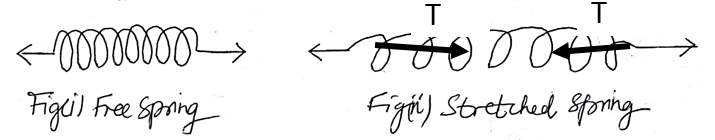 T T
Fig(i) Free Spring
Fig(ii) Stretched Spring